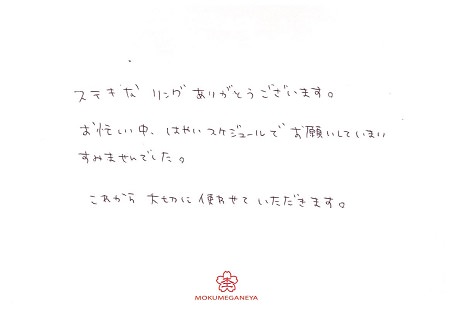 ステキな リング ありがとうございます。
お忙しい中、はやいスケジュールで お願いしてしまい
すみませんでした。
これから 大切に 使わせて いただきます。
MOKUMEGANEYA